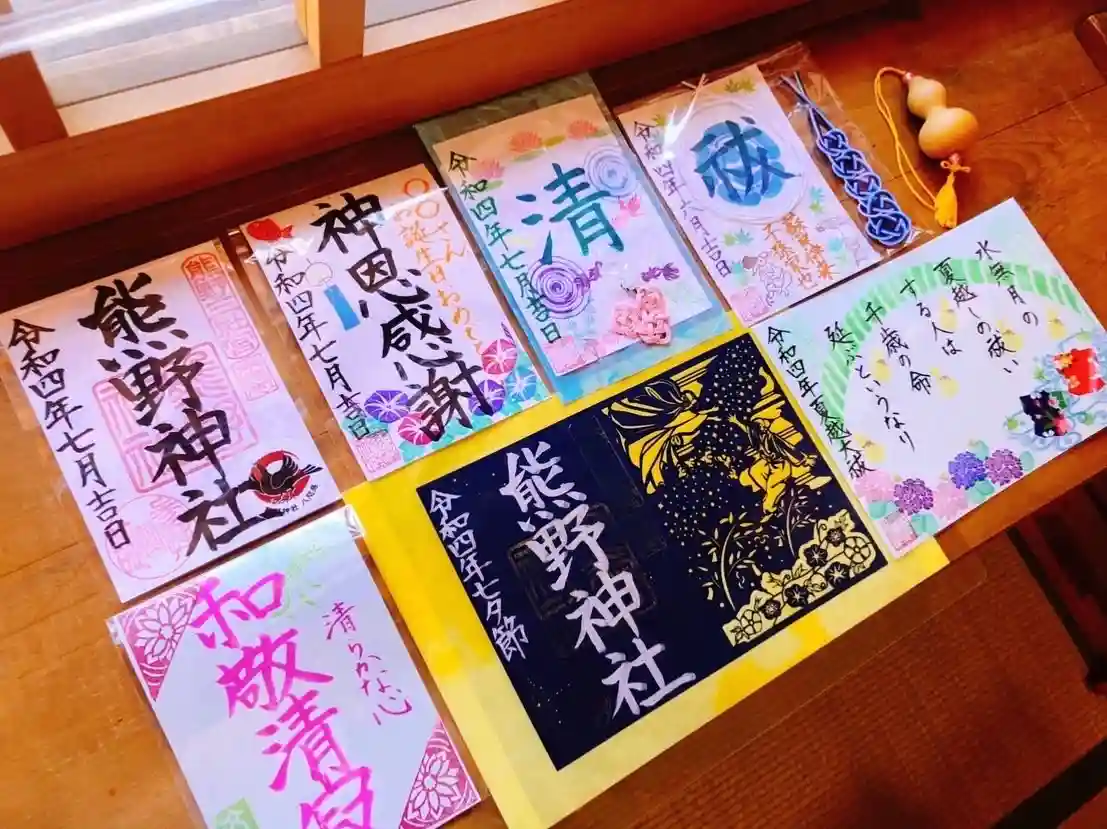 熊野神社
令和四年七月吉日
〇〇さん
お誕生日おめでとう
神恩感謝
令和四年七月吉日
清
令和四年七月吉日
祓
令和四年六月吉日
水無月の
夏越しの祓い
する人は
千歳の命
延ぶというなり
令和四年夏越大祓
熊野神社
令和四年七夕節
清らかな心
和敬清寂